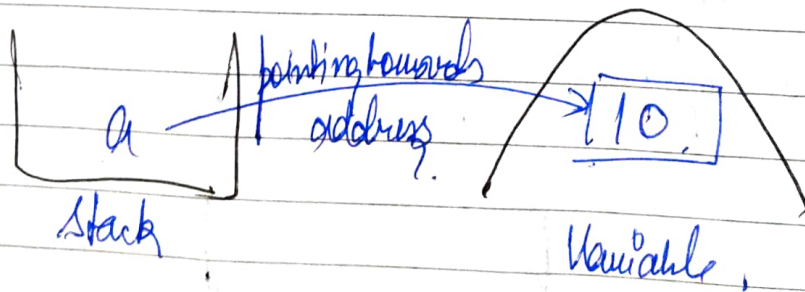 pointing towards
a
address.
10
Stack
Variable